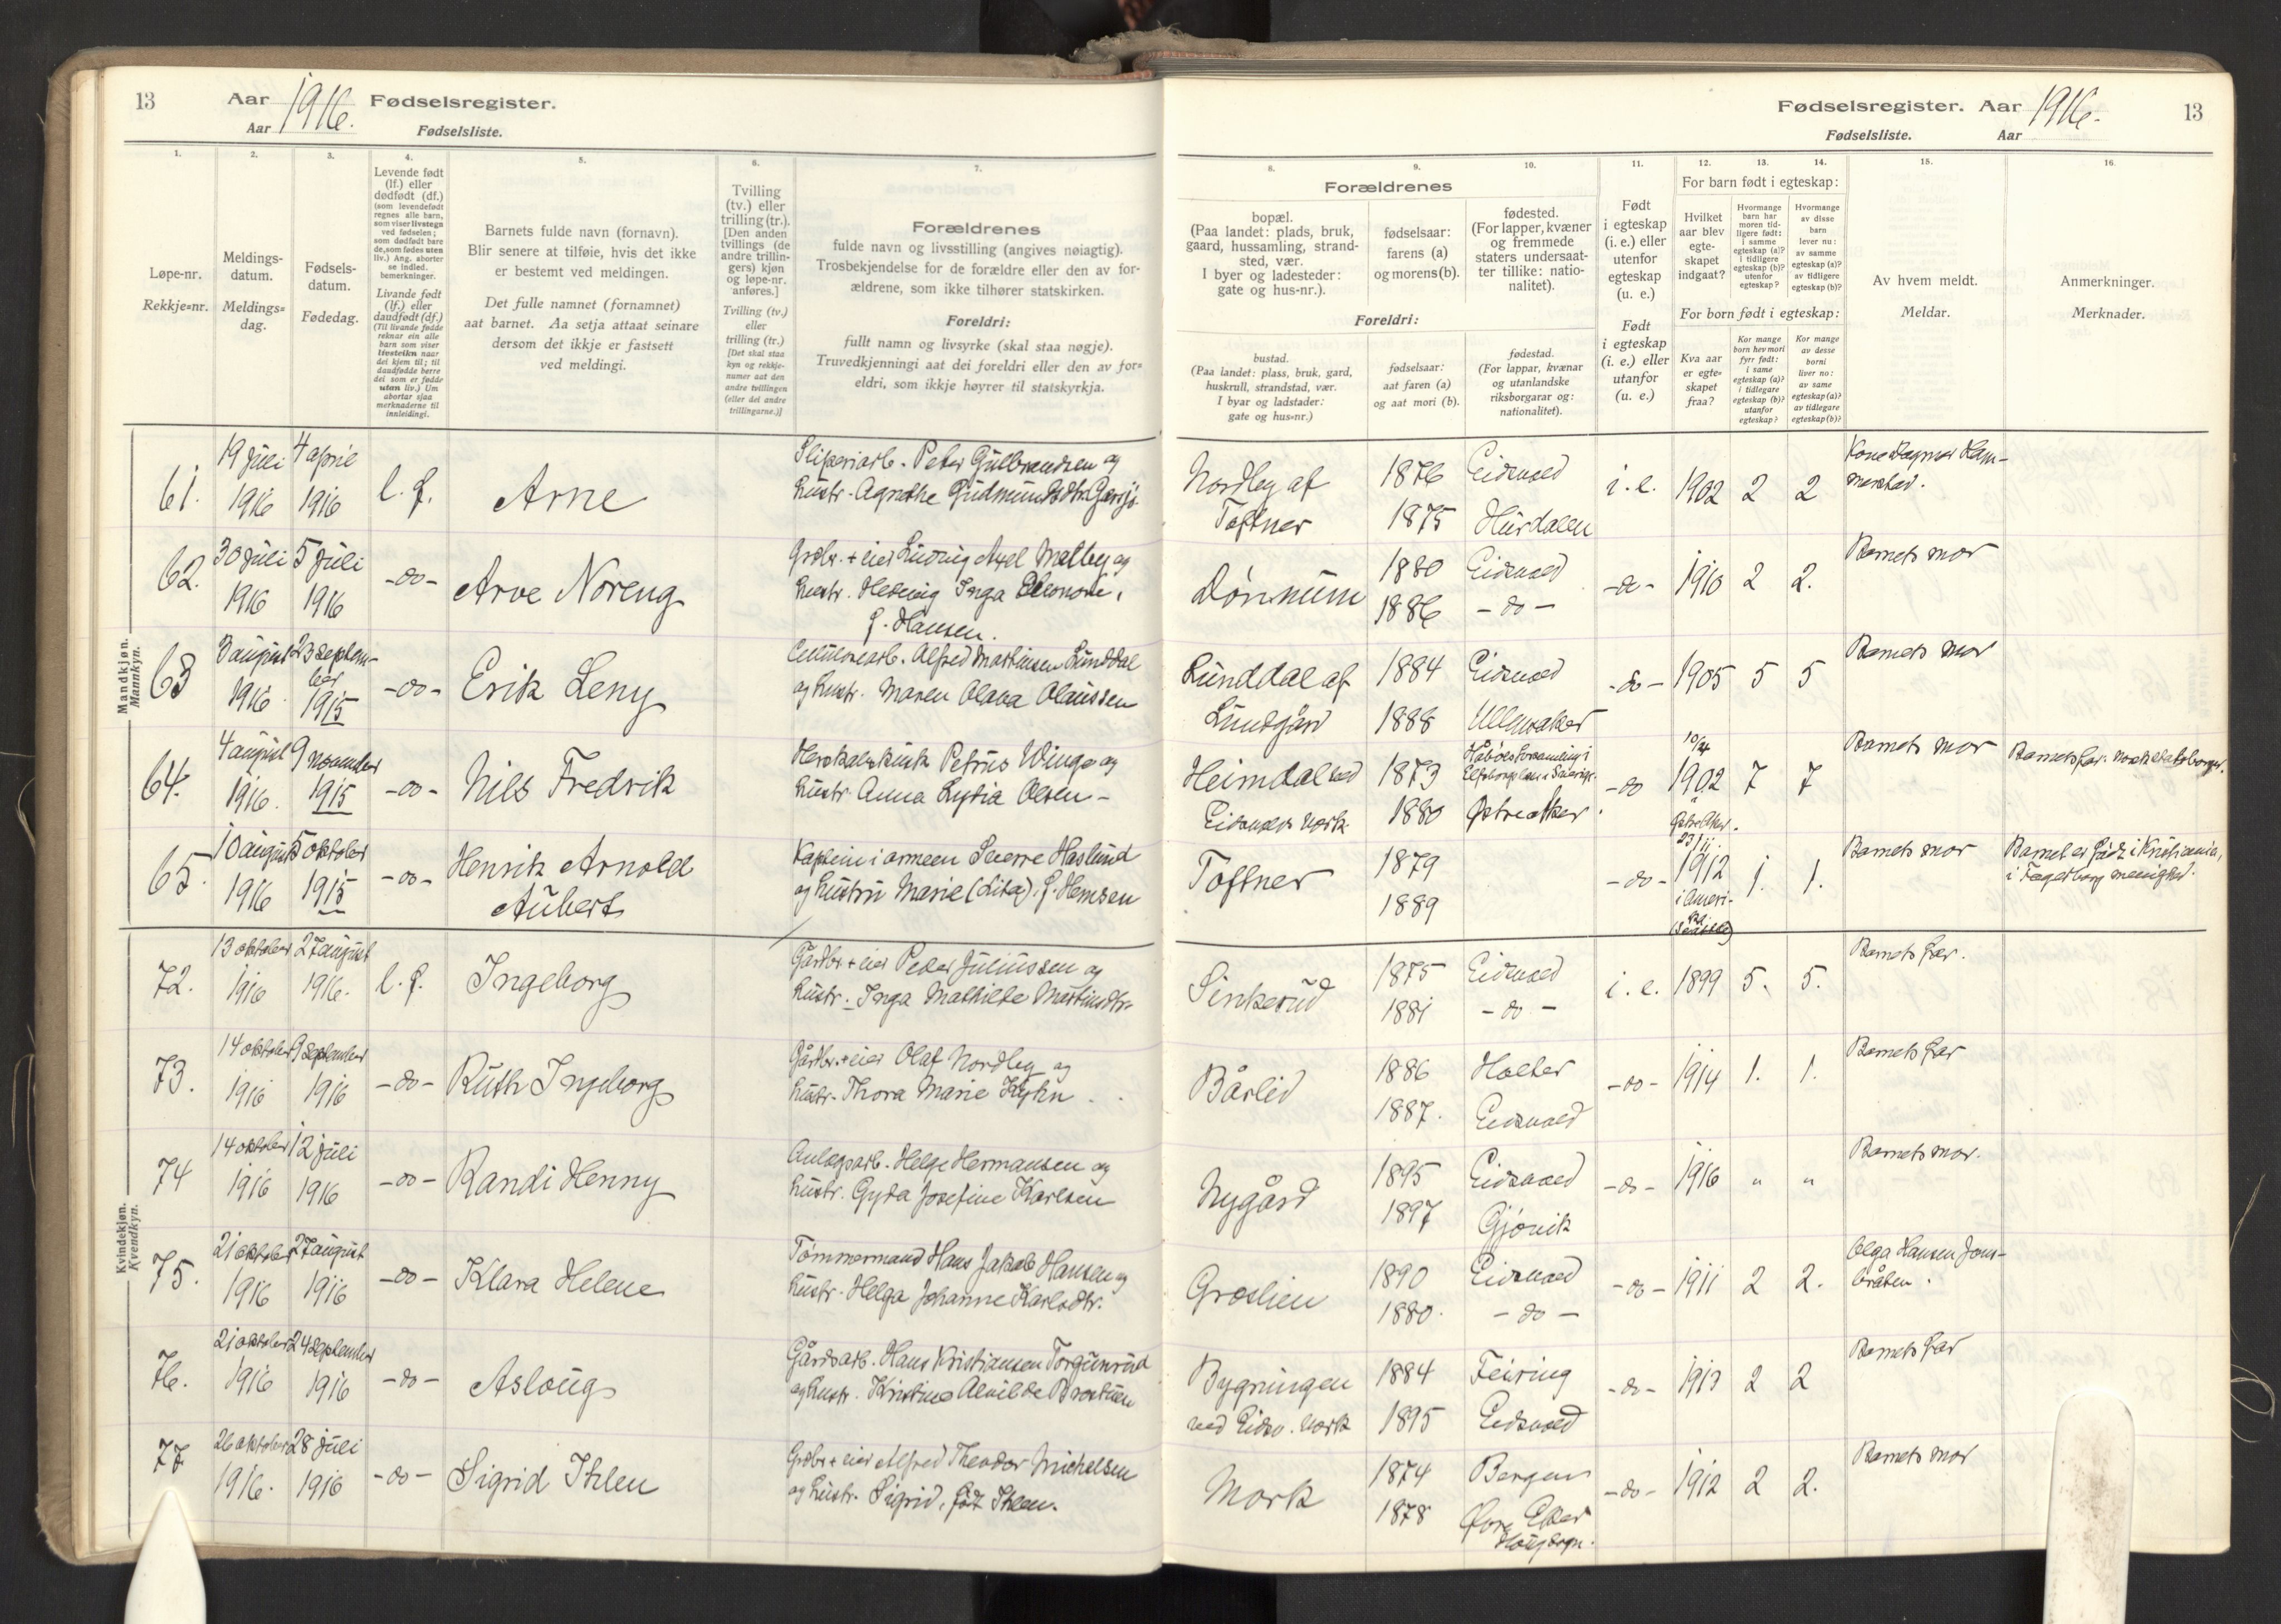 13
Aar 1916. Fødselsregister.
Aar
Fødselsliste.
1.
2.
3.
4.
5.
6.
7.
Løpe-nr.
Rekkje=nr.
Meldings-
datum.
Meldings=
dag.
Fødsels-
datum.
Fødedag.
Levende født
(lf.) eller
dødfødt (df.)
(som levendefødt
regnes alle barn,
som viser livstegn
ved fødselen;
som dødfødt bare
de, som fødes uten
liv.) Ang. aborter
se indled.
bemerkninger.
Livande født
(lf.) eller
daudfødt (df.)
(Til livande fødde
reknar ein alle
barn som viser
livsteikn naar
dei kjem til; til
daudfødde berre
dei som er fødde
utan liv.) Um
abortar sjaa
merknaderne til
innleidingi.
Barnets fulde navn (fornavn).
Blir senere at tilføie, hvis det ikke
er bestemt ved meldingen.
Det fulle namnet (fornamnet)
aat barnet. Aa setja attaat seinare
dersom det ikkje er fastsett
ved meldingi.
Tvilling
(tv.) eller
trilling (tr.).
[Den anden
tvillings (de
andre trillin-
gers) kjøn
og løpe-nr.
anføres.]
Tvilling (tv.)
eller
trilling (tr.)
[Det skal staa
kyn og rekkje-
numer aat den
andre tvillingen
(eller dei andre
trillingarne.)]
Forældrenes
fulde navn og livsstilling (angives nøiagtig).
Trosbekjendelse for de forældre eller den av for-
ældrene, som ikke tilhører statskirken.
Foreldri:
fullt namn og livsyrke (skal staa nøgje).
Truvedkjenningi aat dei foreldri eller den av for=
eldri, som ikkje høyrer til statskyrkja.
Mandkjøn.
Mannkyn.
61.
19 juli
1916
4 april
1916
l. f.
Arne
Sliperiarb. Peter Gulbrandsen og
hustr. Agnethe Gudmundsdtr. Garsjø.
62.
30 juli
1916
5 juli
1916
-do-
Arve Noreng
Grdbr. + eier Ludvig Axel Melby og
hustr. Hedvig Inga Eleonore,
f. Hansen.
63
3 august
1916.
23 septem-
ber
1915
-do-
Erik Leny
Cellulosearb. Alfred Martinsen Lunddal
og hustr. Maren Olava Olaussen
64.
4 august
1916.
9 november
1915
-do-
Nils Fredrik
Petrus Winge og
hustr. Anna Lydia Olsen -
65.
10 august
1916
5 oktober
1915
-do-
Henrik Arnold
Aubert
Kaptein i armeen Sverre Haslund
og hustru Marie (Lisa). f. Hemsen
Kvindekjøn.
Kvendkyn.
72.
13 oktober
1916
27 august
1916.
l. f.
Ingeborg
Gårdbr. + eier Peder Juliussen og
hustr. Inga Mathilde Martinsdtr.
73.
14 oktober
1916
9 september
1916
-do-
Ruth Ingeborg
Gårdbr. + eier Olaf Nordby og
hustr. Thora Marie Hyhn
74
14 oktober
1916
12 juli
1916
-do-
Randi Henny
Anlægsarb. Helge Hermansen og
hustr. Gyda Josefine Karlsen
75.
21 oktober
1916
27 august
1916
-do-
Klara Helene
Tømmermand Hans Jakob Hansen og
hustr. Helga Johanne Karlsdtr.
76.
21 oktober
1916
24 september
1916
-do-
Asloug
Gårdsarb. Hans Kristiansen Torgunrud
og hustr. Kristine Alvilde Brostuen
77
26 oktober
1916.
28 juli
1916
-do-
Sigrid Ihlen
Grdbr + eier Alfred Theodor Michelsen
og hustr. Sigrid, født Ihlen.
Fødselsregister. Aar 1916.
13
Fødselsliste.
Aar
8.
9.
10.
11.
12.
13.
14.
15.
16.
Forældrenes
bopæl.
(Paa landet: plads, bruk,
gaard, hussamling, strand-
sted, vær.
I byer og ladesteder:
gate og hus-nr.).
fødselsaar:
farens (a)
og morens (b).
fødested.
(For lapper, kvæner
og fremmede
staters undersaat-
ter tillike: natio-
nalitet).
Foreldri:
bustad.
(Paa landet: plass, bruk, gard,
huskrull, strandstad, vær.
I byar og ladstader:
gate og hus=nr.)
fødselsaar:
aat faren (a)
og aat mori (b).
fødestad.
(For lappar, kvænar
og utanlandske
riksborgarar og:
nationalitet).
Født
i egteskap
(i. e.) eller
utenfor
egteskap
(u. e.)
Født
i egteskap
(i. e.) eller
utanfor
(u. e.)
For barn født i egteskap:
Hvilket
aar blev
egte-
skapet
indgaat?
Hvormange
barn har
moren tid-
ligere født:
i samme
egteskap (a)?
i tidligere
egteskap (b)?
utenfor
egteskap?
Hvormange
av disse
barn
lever nu:
av samme
egteskap (a)?
av tidligere
egteskap (b)?
For born født i egteskap:
Kva aar
er egte=
skapet
fraa?
Kor mange
born hev mori
fyrr født:
i same
egteskap (a)?
i tidlegare
egteskap (b)?
utanfor
egteskap?
Kor mange
av desse
borni
liver no:
av same
egteskap (a)?
av tidlegare
egteskap (b)?
Av hvem meldt.
Meldar.
Anmerkninger.
Merknader.
Nordby af
Toftner
1876
1875
Eidsvold
Hurdalen
i. e.
1902
2
2
Kone Dagmar Ham-
merstad.
Dønnum
1880
1886
Eidsvold
- do -
-do-
1910
2
2.
Barnets mor
Lunddal af
Lundgård
1884
1888
Eidsvold
Ullensaker
-do-
1905
5
5
Barnets mor
Heimdal ved
Eidsvolds værk
1873
1880
Østre Aker
-do
10/4
1902
Østre Aker.
7
7
Barnets mor
Barnets far norsk statsborger.
Toftner
1879
1889
-do-
23/11
1912
i Ameri-
ka
1.
1.
Barnets mor
Barnet er født i Kristiania,
i Fagerborg menighed.
Sinkerud
1875
1881
Eidsvold
- do -
i. e.
1899
5.
5.
Barnets far.
Bårlid
1886
1887.
Holter
Eidsvold
-do-
1914
1.
1.
Barnets far
Nygård
1895
1897
Eidsvold
Gjøvik
-do-
1916
"
"
Barnets mor.
Groslien
1890
1880.
Eidsvold
- do -
-do-
1911
2
2.
Olga Hansen Jøns-
bråten.
Bygningen
ved Eidsv. værk
1884
1895
Feiring
Eidsvold
-do-
1913
2
2
Barnets far
Mork
1874
1878
Bergen
Øvre Eker
-do-
1912
2
2.
Barnets mor